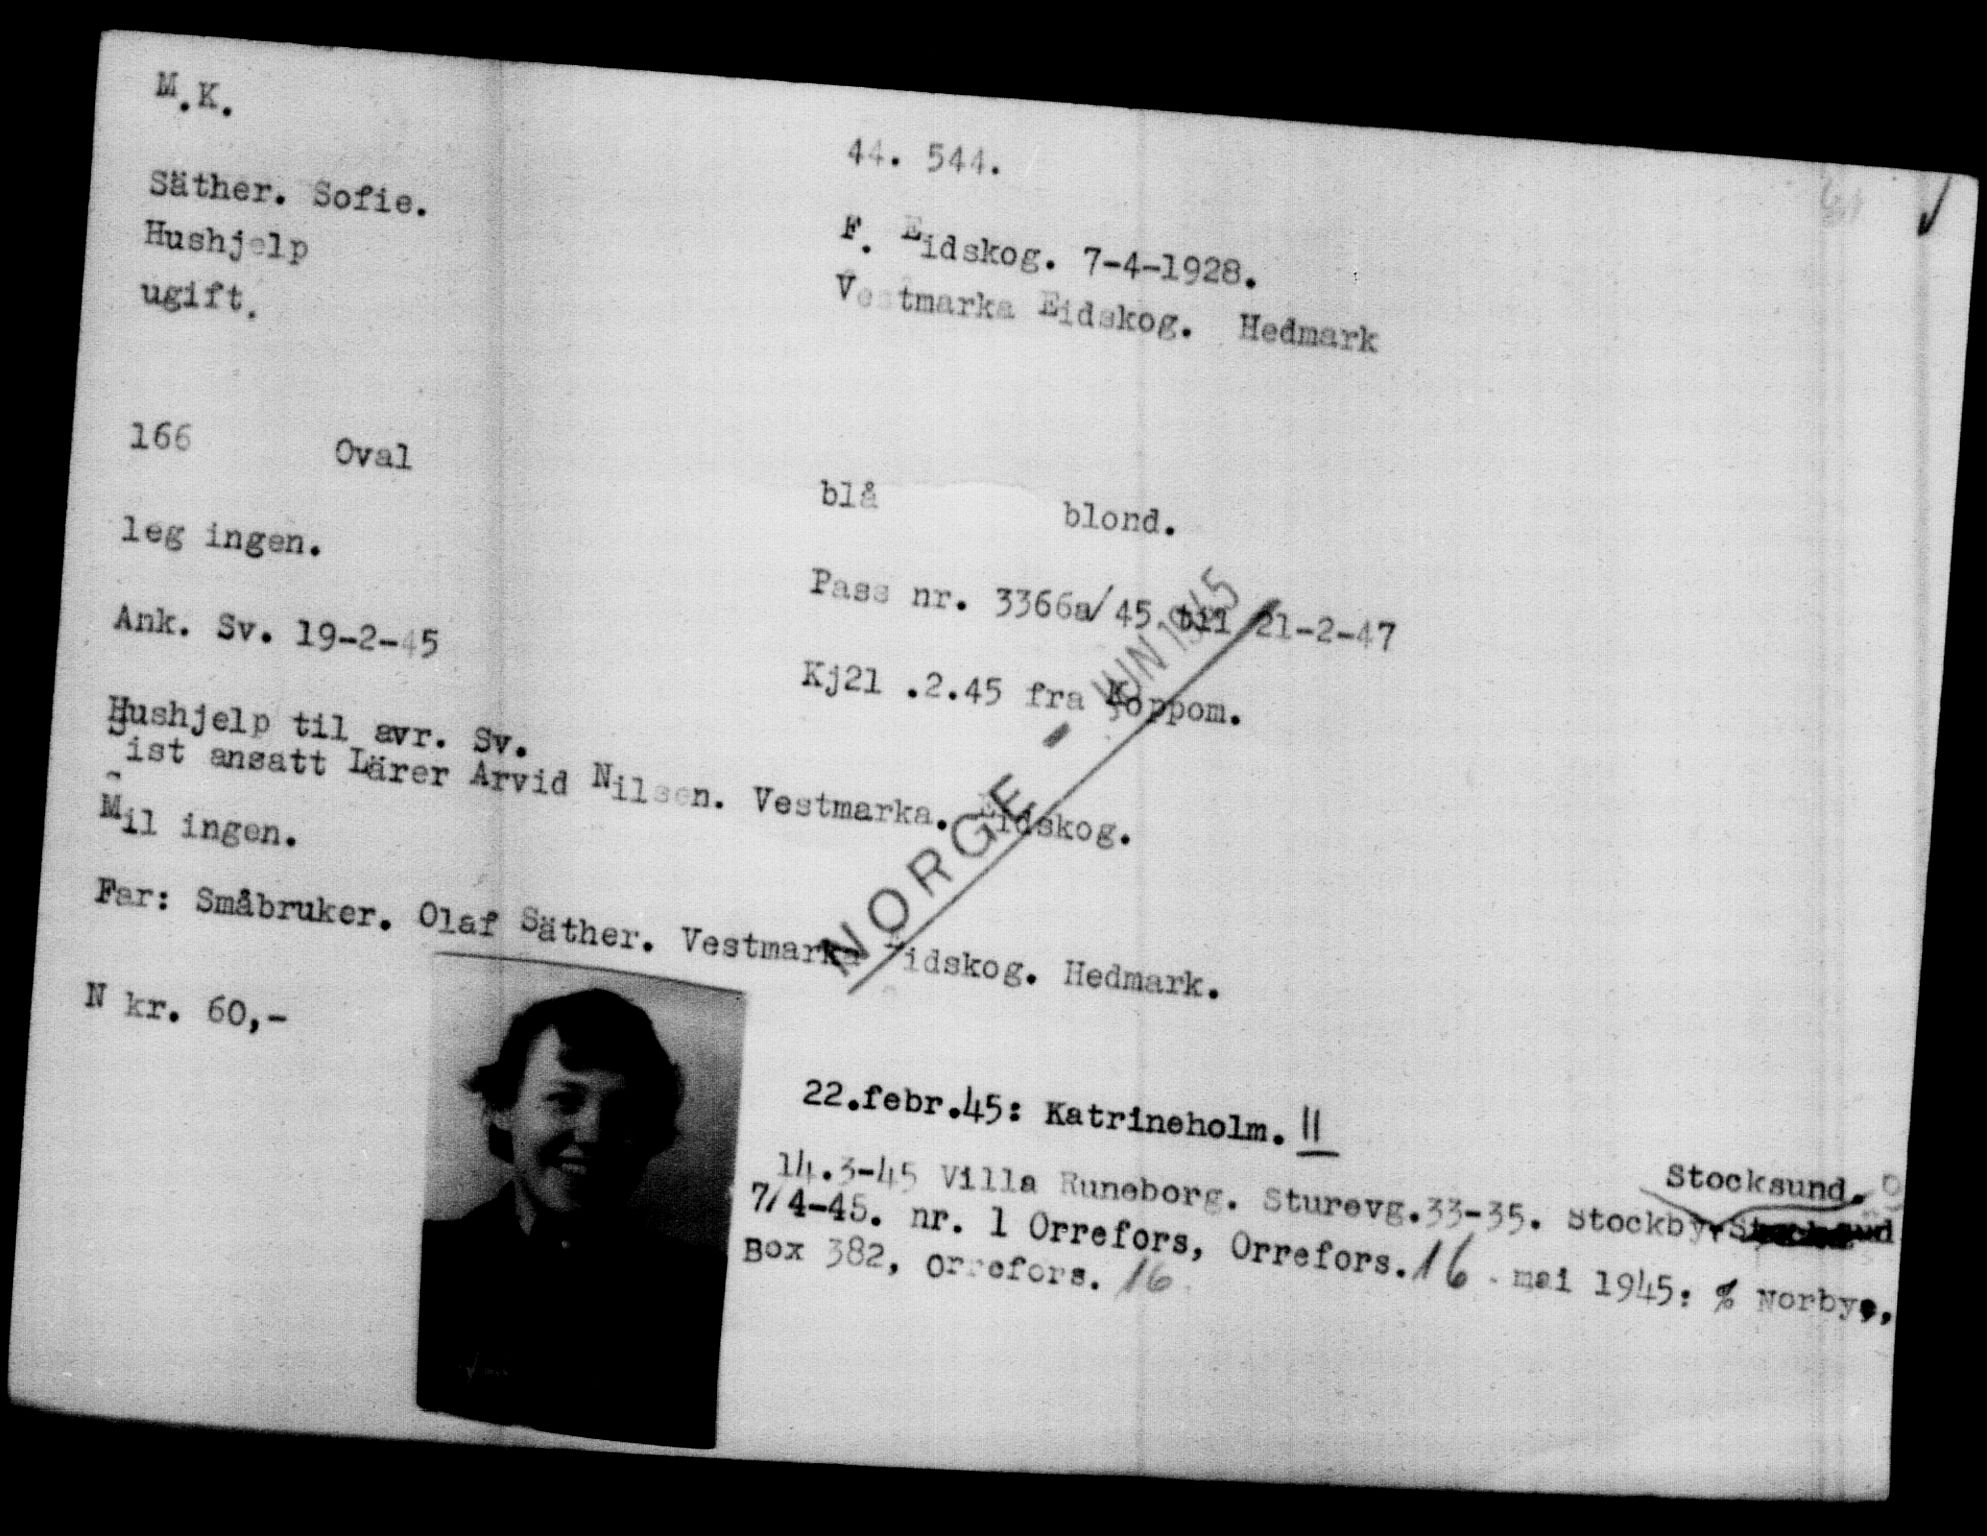 M.K.
44. 544.
Säther. Sofie.
F. Eidskog. 7-4-1928.
Hushjelp
Vestmarka Eidskog. Hedmark
ugift.
166 Oval blå blond.
leg ingen.
Pass nr. 3366a/45. til 21-2-47
Ank. Sv. 19-2-45
Kj21 .2.45 fra Koppom.
Hushjelp til avr. Sv.
Sist ansatt Lärer Arvid Nilsen. Vestmarka. Eidskog.
Mil ingen.
Far: Småbruker. Olaf Säther. Vestmarka Eidskog. Hedmark.
N kr. 60,-
NORGE - JUN 1945
22.febr.45: Katrineholm. II
Stocksund.
14.3-45 Villa Runeborg. Sturevg.33-35. Stockby.
7/4-45. nr. 1 Orrefors, Orrefors. 16. mai 1945: % Norbye,
Box 382, Orrefors. 16